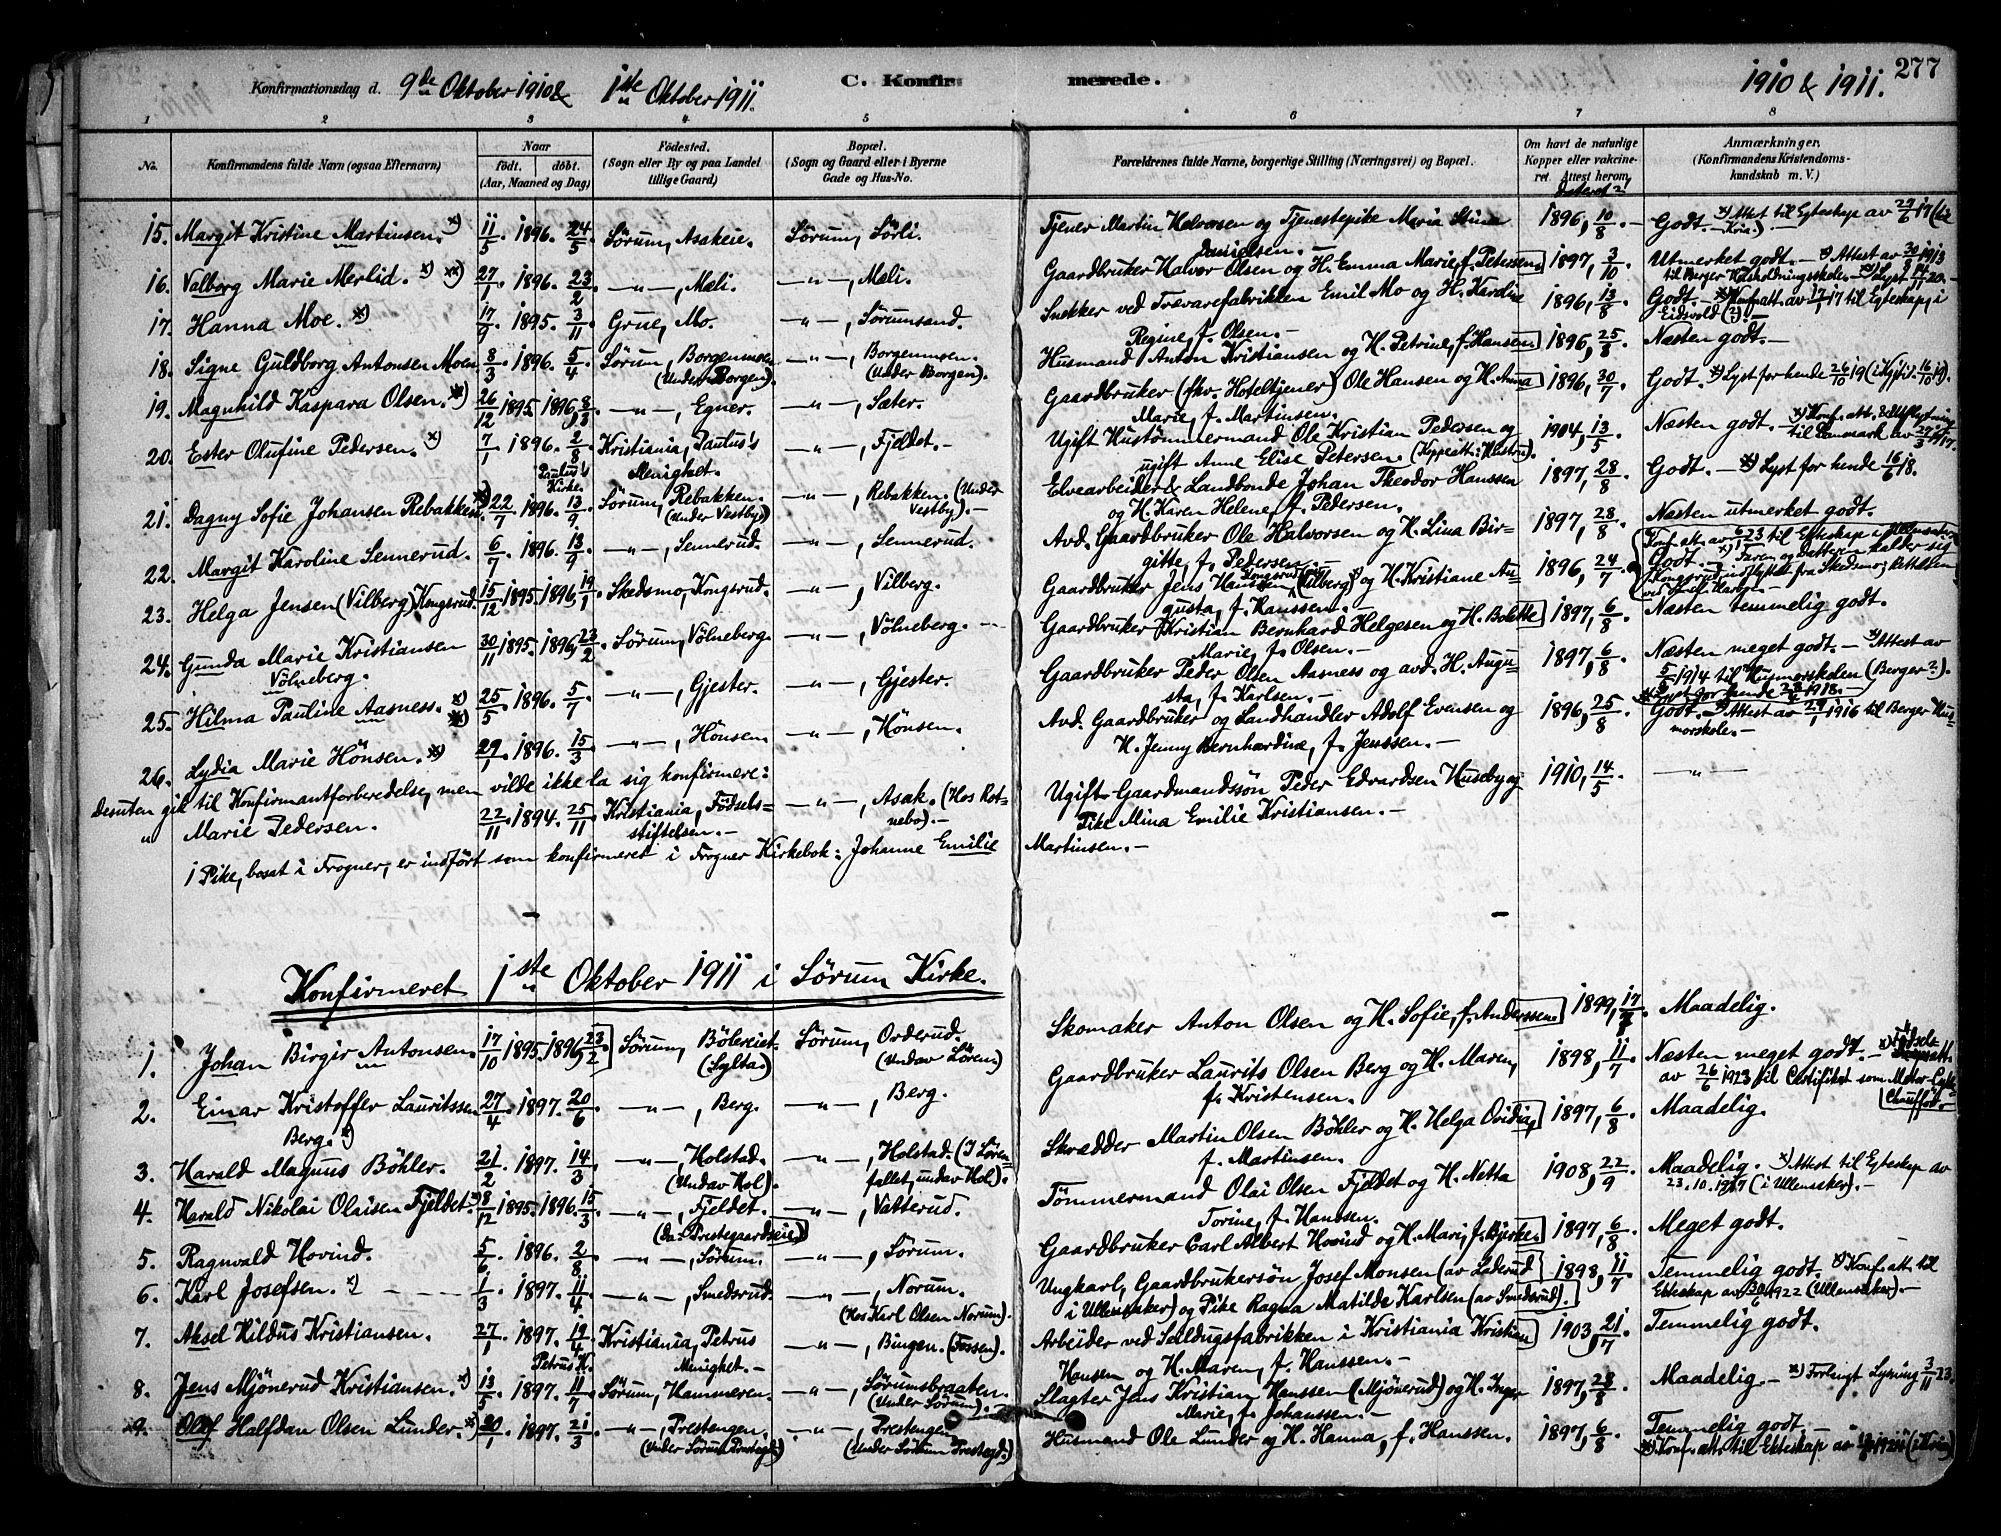 277
Konfirmationsdag d. 9de Oktober 1910 & 1ste Oktober 1911. C. Konfirmerede. 1910 & 1911.
1 2 3 4 5 6 7 8
No. Konfirmandens fulde Navn (ogsaa Efternavn) Naar født. døbt. (Aar, Maaned og Dag) Fødested. (Sogn eller By og paa Landet tillige Gaard) Bopæl. (Sogn og Gaard eller i Byerne Gade og Hus-No. Forældrenes fulde Navne, borgerlige Stilling (Næringsvei) og Bopæl. Om havt de naturlige Kopper eller vakcineret. Attest herom, dateret? Anmærkninger, (Konfirmandens Kristendomskundskab m. V.)
15. Margit Kristine Martinsen. x) 11/5. 1896. 24/5 Sørum, Asakeie. Sørum, Sörli. Tjener Martin Halvorsen og Tjenestepike Maria Stina Danielsen. — 1896, 10/8. — Godt. — x) Attest til Egteskap av 29/6 17 (til Kria.). —
16. Valborg Marie Merlid. x) xx) 27/1. 1896. 23/2 —"—, Mæli. —"—, Mæli. Gaardbruker Halvor Olsen og H. Emma Marie, f. Petersen. 1897, 3/10. Utmerket godt. — x) Attest av 30/8 1913 til Berger Husholdningsskole. — xx) Lyst 14/11 20. —
17. Hanna Moe. x) 17/9. 1895. 3/11 Grue, Mo. —"—, Sørumsand. Snekker ved Trævarefabrikken Emil Mo og H. Karoline Regine, f. Olsen. — 1896, 13/8. Godt. — x) Konf. att. av 17/1 17 til Egteskap i Eidsvold (?). —
18. Signe Guldborg Antonsen Moen 8/3. 1896. 5/4 Sørum, Borgenmoen (Under Borgen). —"—, Borgenmoen. (Under Borgen). Husmand Anton Kristiansen og H. Petrine, f. Hansen 1896, 25/8. Næsten godt. —
19. Magnhild Kaspara Olsen. x) 26/12. 1895. 1896, 8/3 —"—, Egner. —"—, Sæter. Gaardbruker (fhv. Hoteltjener) Ole Hansen og H. Anna Marie, f. Martinsen. 1896, 30/7. Godt. x) Lyst for hende 26/10 19
20. Ester Olufine Pedersen. x) 7/1. 1896. 2/8 Paulus's Kirke. Kristiania, Paulus's Menighet. —"—, Fjeldet. — Ugift Hustømmermand Ole Kristian Pedersen og ugift Anne Elise Petersen. 1904, 13/5. Næsten godt. — x) Konf. att. & Utflytning til Danmark av 27/3 1917.
21. Dagny Sofie Johansen Rebakken. x) 22/7. 1896. 13/9. Sørum, Rebakken. (Under Vestby) —"—, Rebakken. (Under Vestby). — Elvearbeider & Landbonde Johan Theodor Hanssen og H. Karen Helene, f. Pedersen. 1897, 28/8. Godt. — x) Lyst for hende 16/6 18.
22. Margit Karoline Sennerud. 6/7. 1896. 13/9 —"—, Sennerud. —"—, Sennerud. Avd. Gaardbruker Ole Halvorsen og H. Lina Birgitte, f. Pedersen. 1897, 28/8. Næsten utmerket godt.
23. Helga Jensen (Vilberg) Kongsrud. 15/12. 1895. 1896, 19/1 Skedsmo, Kongsrud. —"—, Vilberg. Gaardbruker Jens Hanssen Kongsrud (Vilberg) x) og H. Kristiane Augusta, f. Hanssen. — 1896, 24/7. Godt. x) Faren og datteren kalder sig Kongsrud, indflyttet fra Skedsmo
24. Gunda Marie Kristiansen Völneberg. 30/11. 1895. 1896, 23/2. Sørum, Völneberg. —"—, Völneberg. — Gaardbruker Kristian Bernhard Helgesen og H. Bolette Marie, f. Olsen. — 1897, 6/8. Næsten temmelig godt.
25. Hilma Pauline Aasness. x) xx) 25/5. 1896. 5/7 —"—, Gjester. —"—, Gjester. Gaardbruker Peder Olsen Aasness og avd. H. Augusta, f. Karlsen. — 1897, 6/8. Næsten meget godt. — x) Attest av 5/8 1914 til Husmorskolen (Berger?).
26. Lydia Marie Hönsen. x) 29/1. 1896. 15/3 —"—, Hönsen. —"—, Hönsen. Avd. Gaardbruker og Landhandler Adolf Evensen og H. Jenny Bernhardine, f. Jenssen. — 1896, 25/8. Godt. — x) Attest av 29/1 1916 til Berger Husmorskole. —
Desuten gik til Konfirmantforberedelse, men vilde ikke la sig konfirmere:
" Marie Pedersen. 22/11. 1894. 25/11. Kristiania, Fødselsstiftelsen. — —"—, Asak. (Hos Rotnebo). — Ugift Gaardmandssön Peder Edvardsen Huseby og Pike Mina Emilie Kristiansen. 1910, 14/5. —"—
1 Pike, bosat i Frogner, er indført som konfirmeret i Frogner Kirkebok: Johanne Emilie Martinsen. —
Konfirmeret 1ste Oktober 1911 i Sørum Kirke.
1. Johan Birgir Antonsen. 17/10 1895. 1896, 23/2 Sørum, Bölereiet. (Sylta) Sørum, Orderud. (Undav Sören) Skomaker Anton Olsen og H. Sofie, f. Anderssen. 1899, 17/7. Maadelig.
2. Einar Kristoffer Lauritssen Berg. x) 27/4. 1897. 20/6 —"—, Berg. —"—, Berg. Gaardbruker Laurits Olsen Berg og H. Maren, f. Kristensen. 1898, 11/7. Næsten meget godt. — x) Fødselsatt. av 26/6 1923 til Certifikat som Motor-Cykle Chauffør. —
3. Harald Magnus Böhler. 21/2. 1897. 14/3 —"—, Holstad. (Undav Hol). —"—, Holstad. (I Sörenfallet, undav Hol). Skrædder Martin Olsen Böhler og H. Helga Ovidia, f. Martinsen. 1897, 6/8. Maadelig.
4. Harald Nikolai Olaisen Fjeldet. x) 8/12. 1895. 1896. 15/3 —"—, Fjeldet. (da: Prestegaardseie) —"—, Vatterud. Tömmermand Olai Olsen Fjeldet og H. Netta Torine, f. Hanssen. 1908, 22/9 Maadelig. x) Attest til Egteskap av 23. 10. 1917 (i Ullensaker). —
5. Ragnvald Hovind. 5/6. 1896. 2/8. —"—, Sørum. —"—, Sørum. Gaardbruker Carl Albert Hovind og H. Mari, f. Bjerke. 1897, 6/8. Meget godt.
6. Karl Josefsen. x) 1/3. 1897. 11/4 —"—, Smedsrud. —"—, Norum. (Hos Karl Olsen Norum). Ungkarl, Gaardbrukersön Josef Monsen (av Laderud i Ullensaker) og Pike Ragna Matilde Karlsen (av Smedsrud). 1898, 11/7 Temmelig godt. x) Konf. att. til Ekteskap av 30/6 1922 (Ullensaker). —
7. Aksel Hildus Kristiansen. 27/1. 1897. 19/4 Petrus K. Kristiania, Petrus Menighet. — —"—, Bingen. (Fossen). Arbeider ved Seildugsfabrikken i Kristiania Kristian Hansen og H. Maren, f. Hanssen. — 1903, 21/7. Temmelig godt.
8. Jens Mjönerud Kristiansen. x) 13/5. 1897. 11/7. Sørum, Hammeren. —"—, Sørumsbraaten. (Under Sørum). — Slagter Jens Kristian Hanssen (Mjönerud) og H. Inger Marie, f. Johanssen. — 1897, 28/8 Maadelig. — x) Forlangt Lysning 3/11 23.
9. Olaf Halfdan Olsen Lunder. x) 20/1. 1897. 21/3 —"—, Prestengen. (Under Sørum Prestegd.) —"—, Prestengen. (Under Sørum Prestegd.) Husmand Ole Lunder og H. Hanna, f. Hanssen. 1897, 6/8. Temmelig godt — x) Konf. att. til Ekteskap av